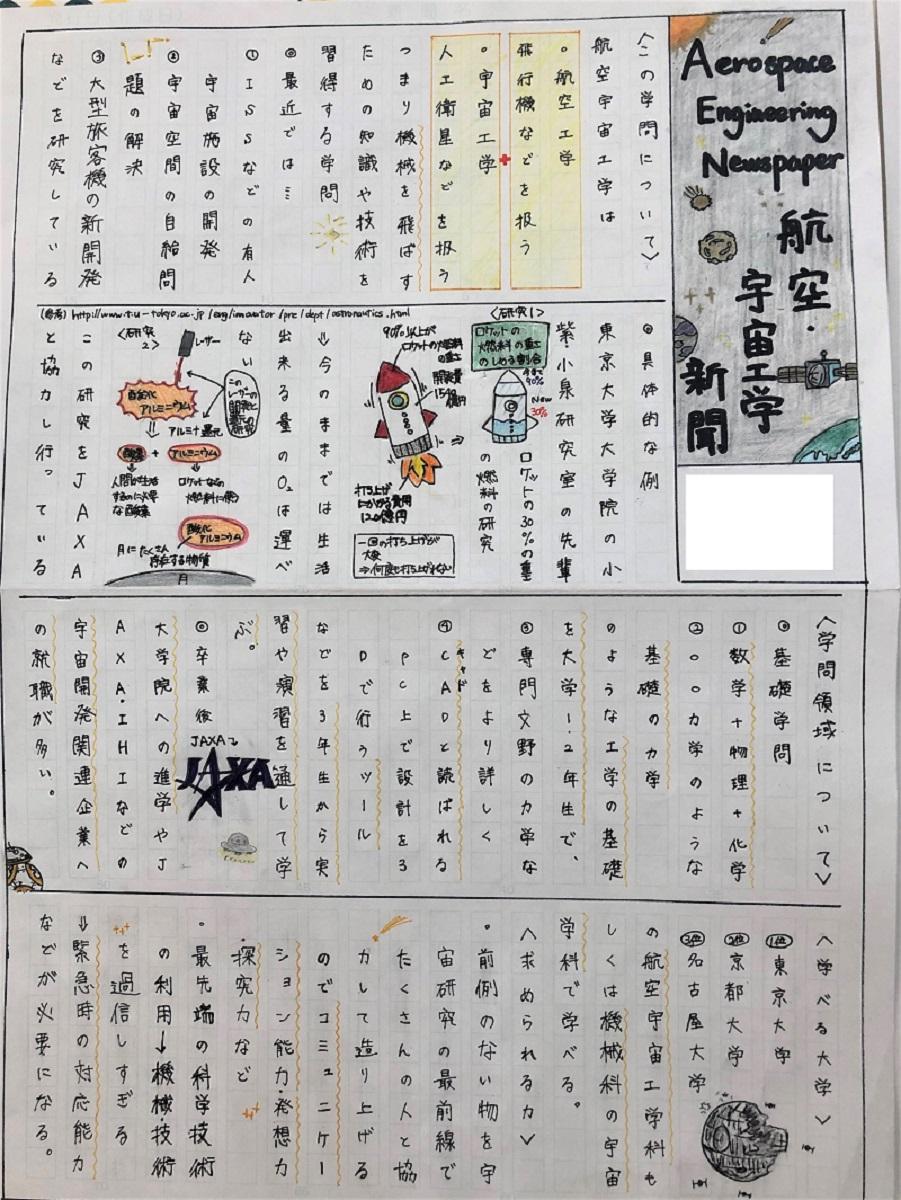 Aerospace
Engineering
Newspaper
航空・
宇宙工学
新聞
〈この学問について〉
航空宇宙工学は
・航空工学
飛行機などを扱う
+
・宇宙工学
人工衛星などを扱う
つまり機械を飛ばす
ための知識や技術を
習得する学問
◎最近では…
①ISSなどの有人
宇宙施設の開発
②宇宙空間の自給問
題の解決
③大型旅客機の新開発
などを研究している
(参考) http://www.t.u-tokyo.ac.jp/eng/innovator/pre/dept/astronautics.html
◎具体的な例
東京大学大学院の小
紫・小泉研究室の先輩
〈研究1〉
ロケットの
燃料の重土
のしめる割合
今まで
90%
New
30%
ロケットの30%の重
の燃料の研究
90%以上が
ロケットの燃焼料
の重土
開発費
154
億円
⇒
打ち上げ
にかかる費用
120億円
一回の打ち上げが
大変
⇒何度も打ち上げれない
⇓今のままでは生活
出来る量のO₂は運べ
ない
〈研究
2〉
レーザー
この
レーザーの
開発と
還元の
研究
酸化
アルミニウム
アルミナ還元
酸素
+
アルミニウム
人間が生活
するのに必要
な酸素
ロケットなどの
燃料に使う
酸化
アルミニウム
月にたくさん
存在する物質
月
この研究をJAXA
と協力し行っている
〈学問領域について〉
◎基礎学問
①数学+物理+化学
②○○力学のような
基礎の力学
のような工学の基礎
を大学1・2年生で、
③専門文野の力学な
どをより詳しく
④CADと読ばれる
キャド
PC上で設計を3
Dで行うツール
などを3年生から実
習や演習を通して学
ぶ。
◎卒業後
JAXA↴
JAXA
大学院への進学やJ
AXA・IHIなどの
宇宙開発関連企業へ
の就職が多い。
〈学べる大学〉
1位 東京大学
2位 京都大学
3位 名古屋大学
の航空宇宙工学科も
しくは機械科の宇宙
学科で学べる。
〈求められる力〉
・前例のない物を宇
宙研究の最前線で
たくさんの人と協
力して造り上げる
のでコミュニケー
ション能力・発想力
・探究力など
・最先端の科学技術
の利用→機械・技術
を過信しすぎる
⇓緊急時の対応能力
などが必要になる。